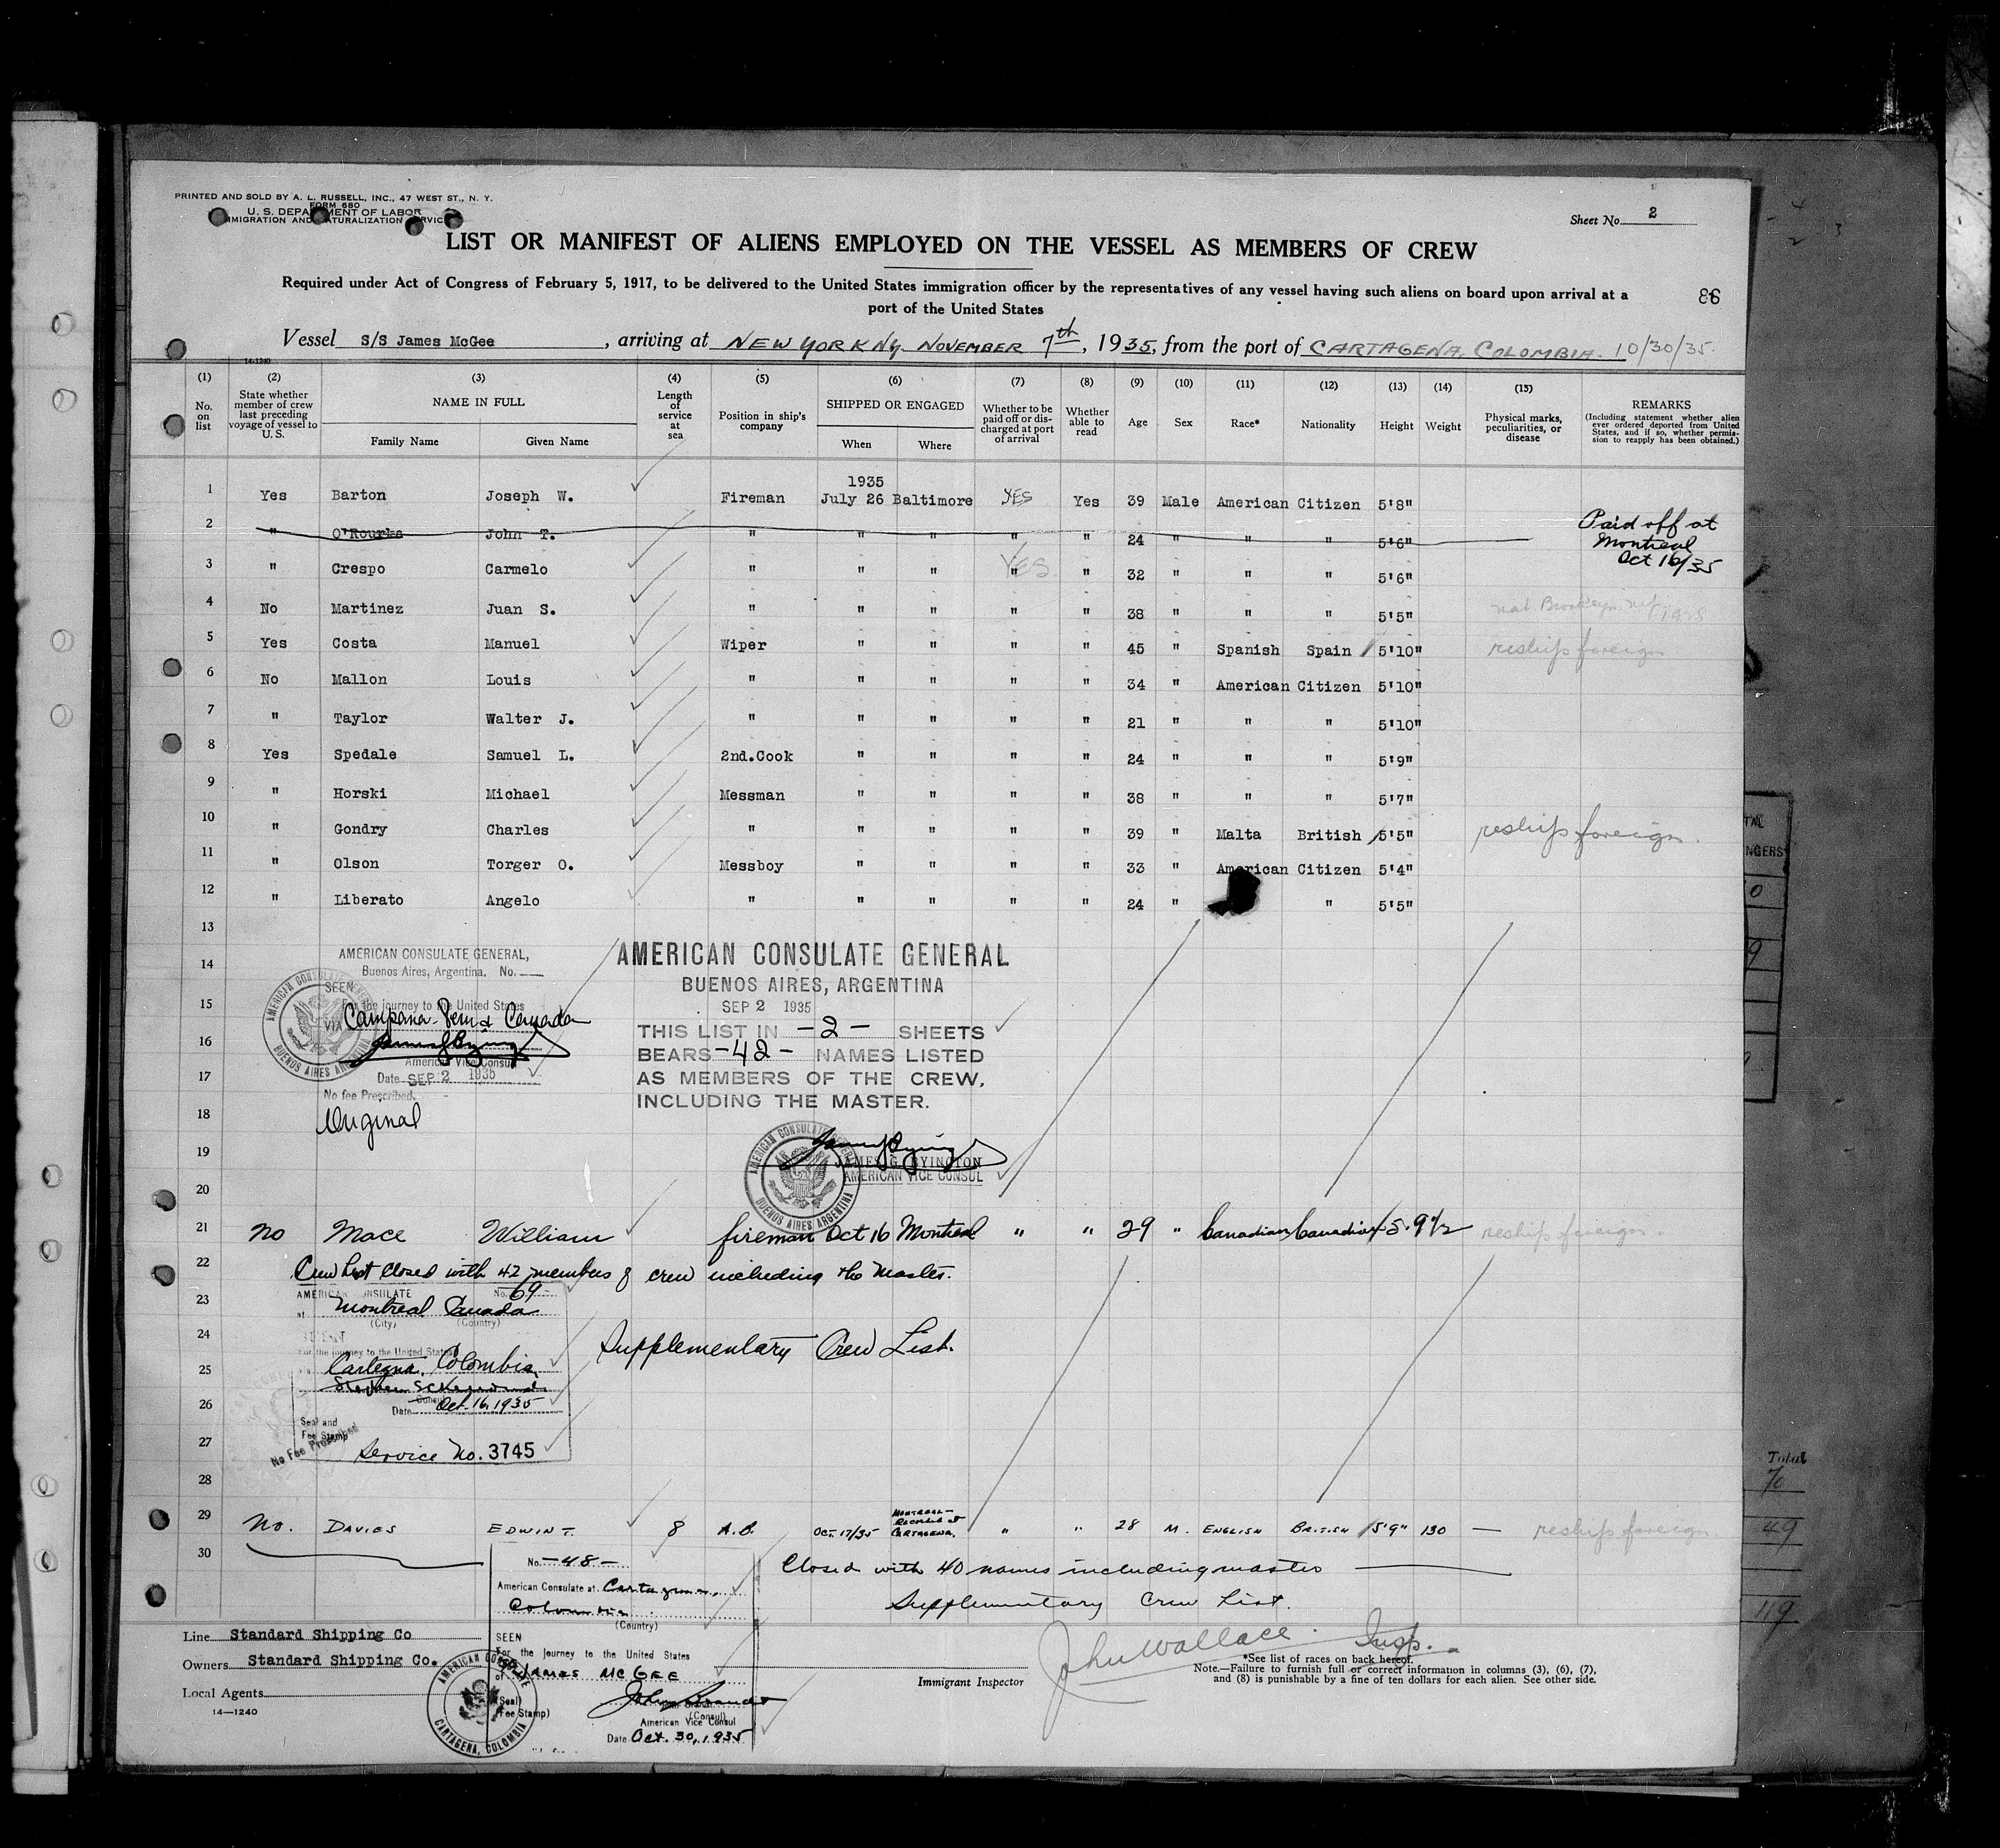 PRINTED AND SOLD BY A. L. RUSSELL, INC., 47 WEST ST., N. Y.
FORM 680
U. S. DEPARTMENT OF LABOR
IMMIGRATION AND NATURALIZATION SERVICE
Sheet No. 2
LIST OR MANIFEST OF ALIENS EMPLOYED ON THE VESSEL AS MEMBERS OF CREW
Required under Act of Congress of February 5, 1917, to be delivered to the United States immigration officer by the representatives of any vessel having such aliens on board upon arrival at a
port of the United States
86
Vessel S/S James McGee, arriving at NEW YORK NY. NOVEMBER 7th, 1935, from the port of CARTAGENA, COLOMBIA. 10/30/35.
14-1240
(1) (2) (3) (4) (5) (6) (7) (8) (9) (10) (11) (12) (13) (14) (15)
No. on list
State whether member of crew last preceding voyage of vessel to U. S.
NAME IN FULL
Family Name Given Name
Length of service at sea
Position in ship's company
SHIPPED OR ENGAGED
When Where
Whether to be paid off or discharged at port of arrival
Whether able to read
Age Sex Race* Nationality Height Weight
Physical marks, peculiarities, or disease
REMARKS
(Including statement whether alien ever ordered deported from United States, and if so, whether permission to reapply has been obtained.)
1935
1 Yes Barton Joseph W. Fireman July 26 Baltimore YES Yes 39 Male American Citizen 5'8"
2 " O'Rourke John T. " " " " " 24 " " " 5'6" Paid off at Montreal Oct 16/35
3 " Crespo Carmelo " " " " YES " 32 " " " 5'6"
4 No Martinez Juan S. " " " " " 38 " " " 5'5" nat. Brooklyn
5 Yes Costa Manuel Wiper " " " " 45 " Spanish Spain 5'10" reship foreign
6 No Mallon Louis " " " " " 34 " American Citizen 5'10"
7 " Taylor Walter J. " " " " " 21 " " " 5'10"
8 Yes Spedale Samuel L. 2nd.Cook " " " " 24 " " " 5'9"
9 " Horski Michael Messman " " " " 38 " " " 5'7"
10 " Gondry Charles " " " " " 39 " Malta British 5'5" reship foreign.
11 " Olson Torger O. Messboy " " " " 33 " American Citizen 5'4"
12 " Liberato Angelo " " " " " 24 " " 5'5"
13
14
15
16
17
18
19
20
AMERICAN CONSULATE GENERAL,
Buenos Aires, Argentina. No.
SEEN
For the journey to the United States
VIA Campana and Canada
American Vice Consul
Date SEP 2 1935
No fee Prescribed.
Original
AMERICAN CONSULATE GENERAL BUENOS AIRES ARGENTINA
AMERICAN CONSULATE GENERAL
BUENOS AIRES, ARGENTINA
SEP 2 1935
THIS LIST IN -2- SHEETS
BEARS -42- NAMES LISTED
AS MEMBERS OF THE CREW,
INCLUDING THE MASTER.
JAMES G. BYINGTON
AMERICAN VICE CONSUL
AMERICAN CONSULATE GENERAL BUENOS AIRES ARGENTINA
21 No Mace William fireman Oct 16 Montreal " " 29 " Canadian Canadian 5.9½ reship foreign.
22 Crew list closed with 42 members of crew including the Master.
23
24
25
26
27
28
AMERICAN CONSULATE No. 69
at Montreal Canada
(City) (Country)
For the journey to the United States
via Cartegna, Colombia
Consul
Date Oct. 16, 1935
Seal and
Fee Stamp
No Fee Prescribed
Service No. 3745
Supplementary Crew List.
29 No. DAVIES EDWIN T. 8 A.B. OCT. 17/35 MONTREAL - CARTAGENA. " " 28 M. ENGLISH BRITISH 5'9" 130 — reship foreign
30
No. -48-
American Consulate at Cartagena,
Colombia
(Country)
SEEN
For the journey to the United States
of SS JAMES MCGEE
(Seal)
(Fee Stamp)
(Consul)
American Vice Consul
Date Oct. 30, 1935
AMERICAN CONSULATE CARTAGENA, COLOMBIA
Closed with 40 names including master
Supplementary Crew List.
Line Standard Shipping Co
Owners Standard Shipping Co.
Local Agents
14—1240
John Wallace Insp.
Immigrant Inspector
*See list of races on back hereof.
Note.—Failure to furnish full or correct information in columns (3), (6), (7),
and (8) is punishable by a fine of ten dollars for each alien. See other side.
Total
49
119